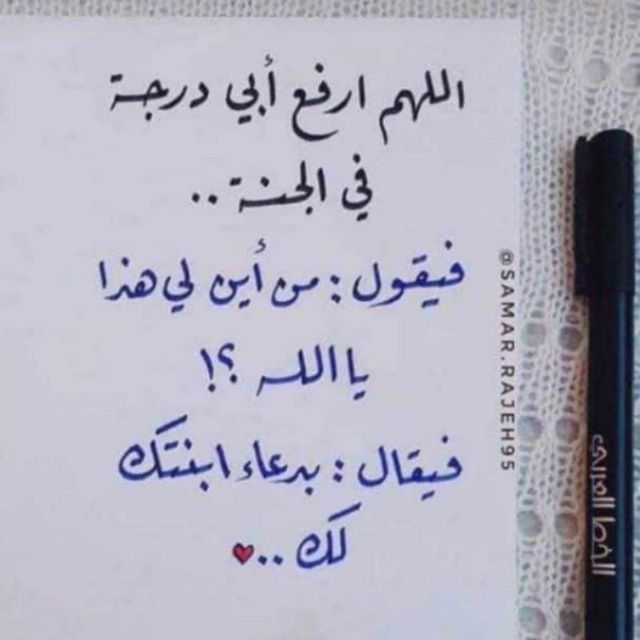 اللهم ارفع أبي درجة
في الجنة ..
فيقول : من أين لي هذا
يا الله ؟!
فيقال : بدعاء ابنتك
لك .. ♥
@SAMAR.RAJEH95
الخط العربي